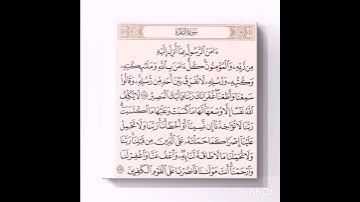 سورة البقرة
ءامن الرسول بما أنزل إليه
من ربه والمؤمنون كل ءامن بالله وملئكته
وكتبه ورسله لا نفرق بين أحد من رسله وقالوا
سمعنا وأطعنا غفرانك ربنا وإليك المصير ٢٨٥ لا يكلف
الله نفسا إلا وسعها لها ما كسبت وعليها ما اكتسبت
ربنا لا تؤاخذنا إن نسينا أو أخطأنا ربنا ولا تحمل
علينا إصرا كما حملته على الذين من قبلنا ربنا
ولا تحملنا ما لا طاقة لنا به واعف عنا واغفر لنا
وارحمنا أنت مولىنا فانصرنا على القوم الكفرين ٢٨٦